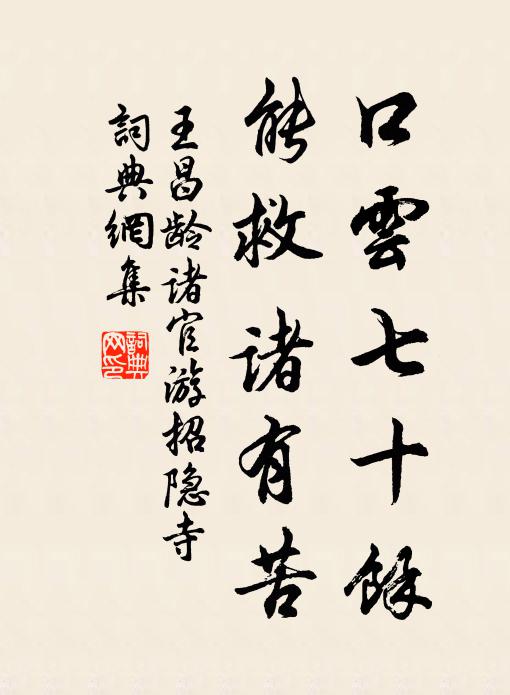 口雲七十餘
能救諸有苦
王昌龄诸官游招隐寺
詞典網集
詞典網印